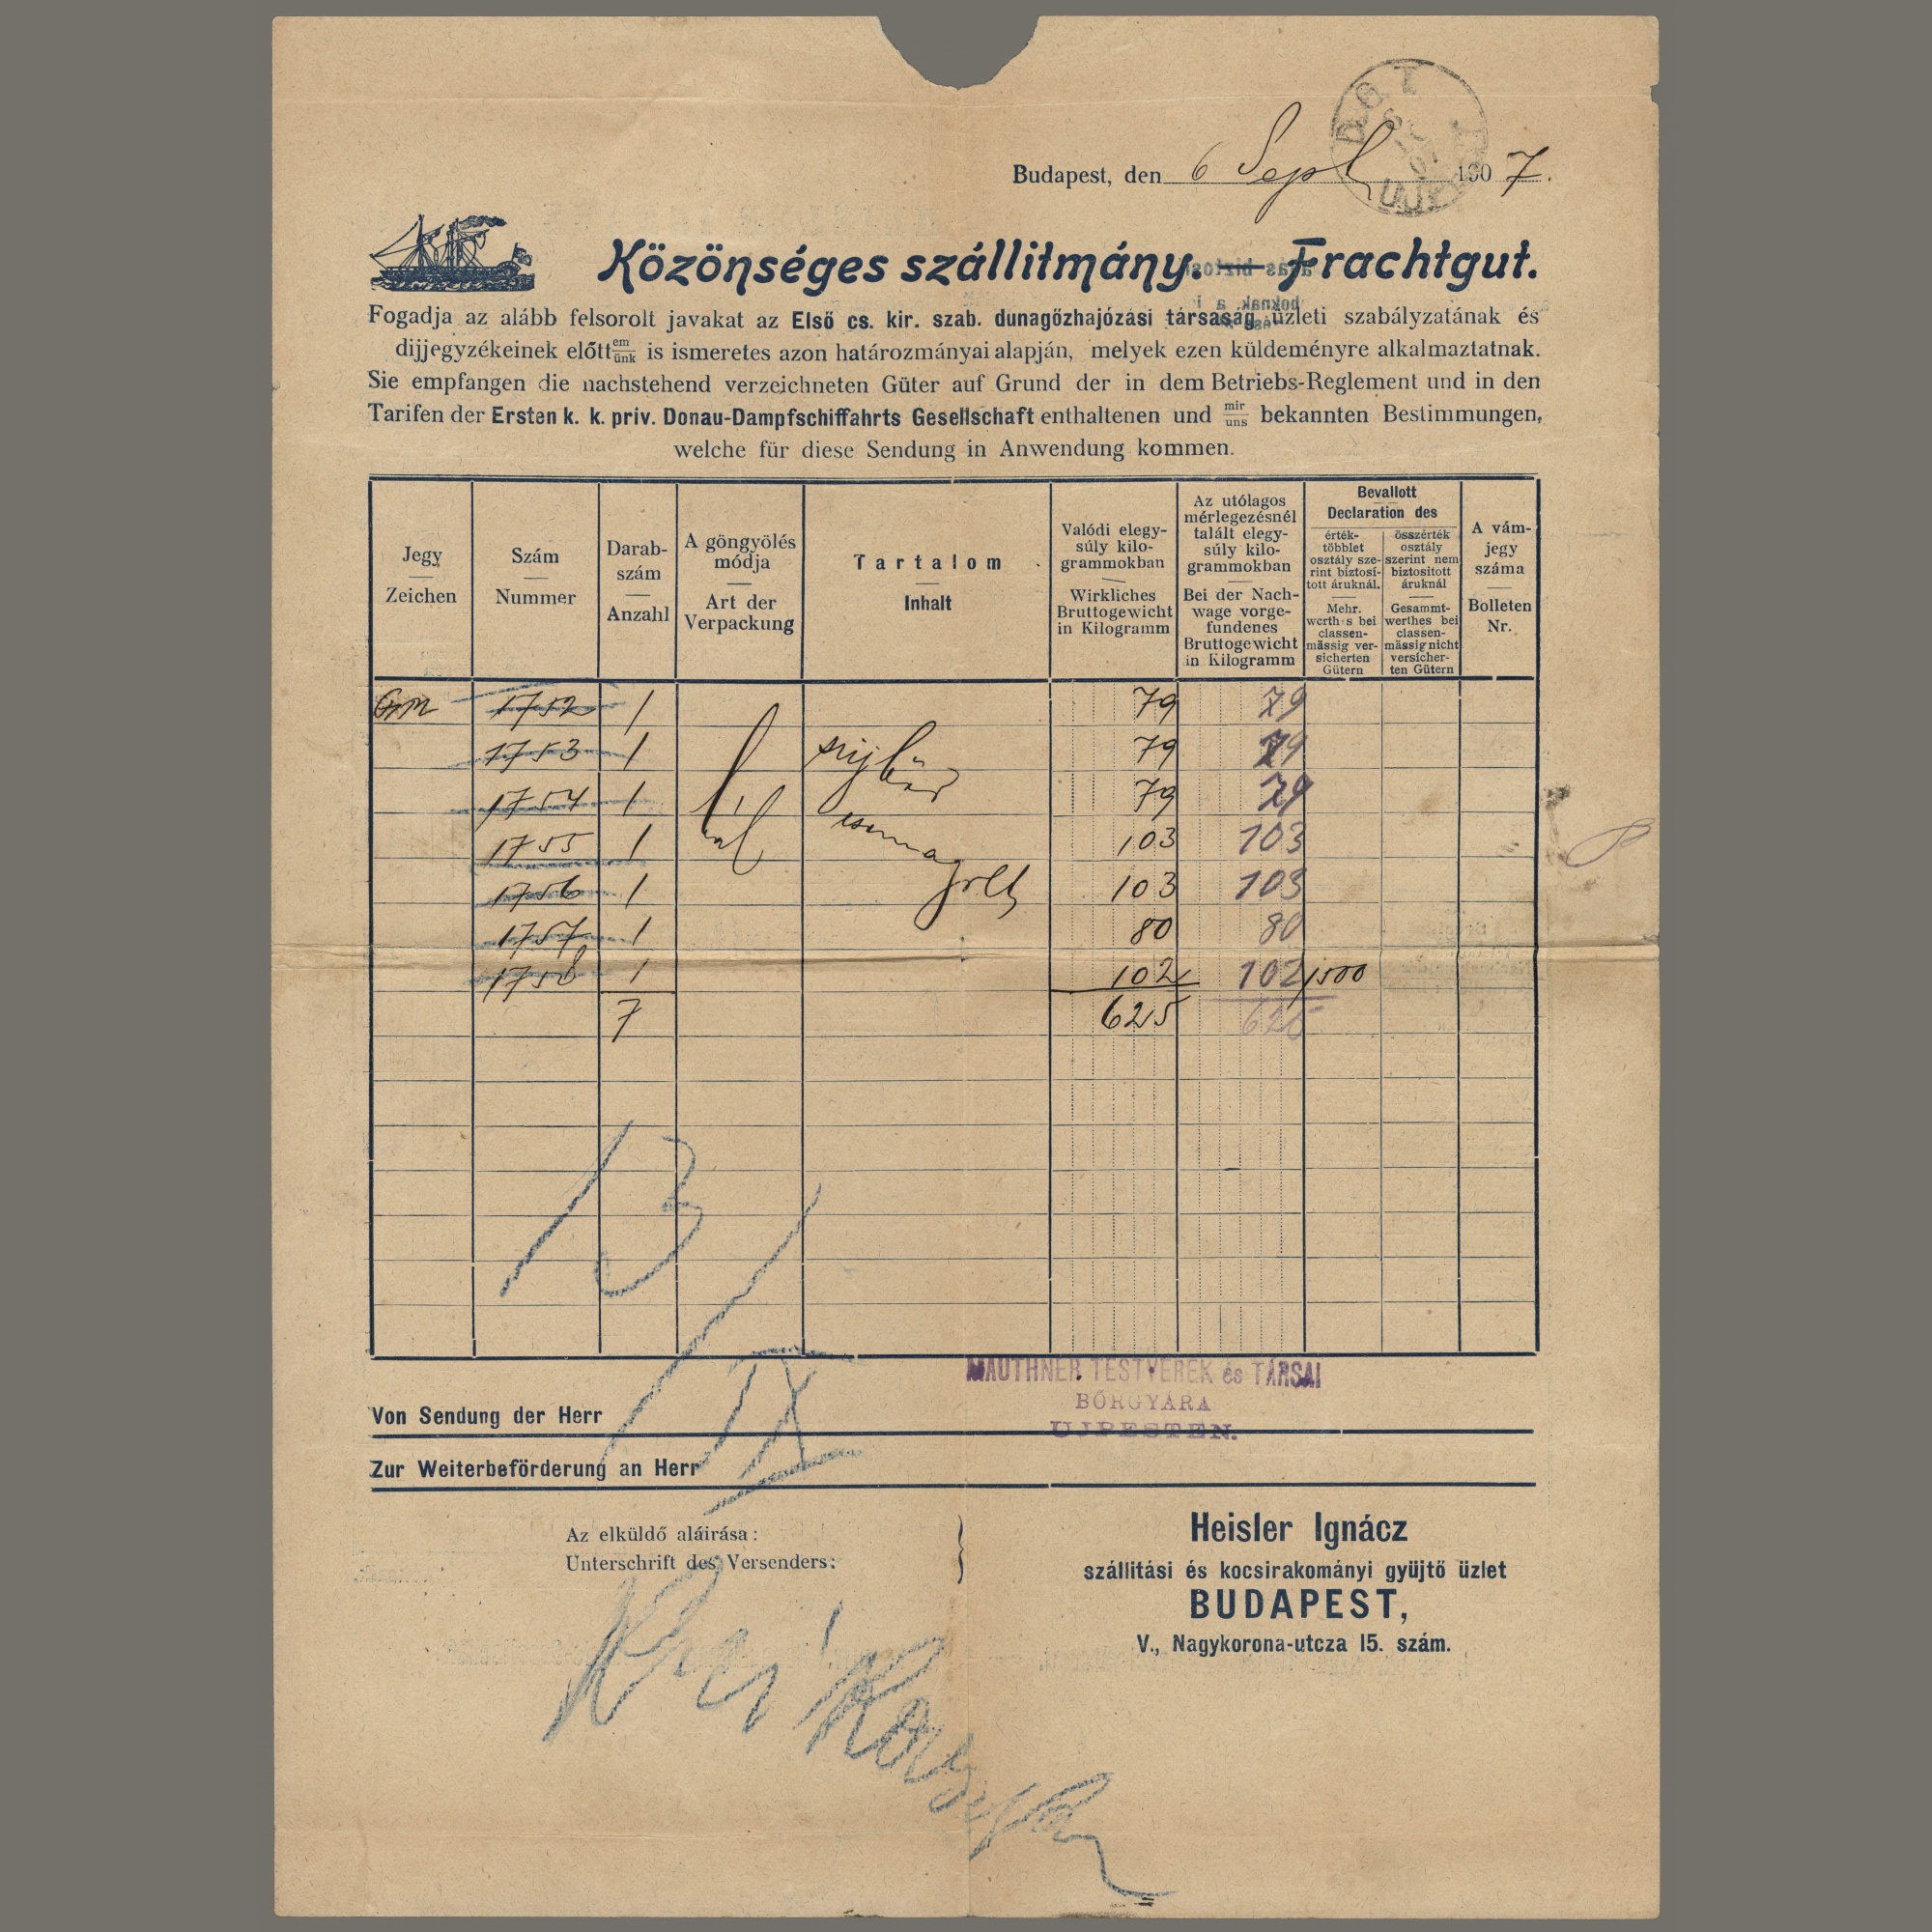 Budapest, den 6 Sept 1907.
Közönséges szállitmány. — Frachtgut.
Fogadja az alább felsorolt javakat az Első cs. kir. szab. dunagőzhajózási társaság üzleti szabályzatának és
dijjegyzékeinek előtt em/ünk is ismeretes azon határozmányai alapján, melyek ezen küldeményre alkalmaztatnak.
Sie empfangen die nachstehend verzeichneten Güter auf Grund der in dem Betriebs-Reglement und in den
Tarifen der Ersten k. k. priv. Donau-Dampfschiffahrts Gesellschaft enthaltenen und mir/uns bekannten Bestimmungen,
welche für diese Sendung in Anwendung kommen.
Jegy
Zeichen
Szám
Nummer
Darab-
szám
Anzahl
A göngyölés
módja
Art der
Verpackung
Tartalom
Inhalt
Valódi elegy-
súly kilo-
grammokban
Wirkliches
Bruttogewicht
in Kilogramm
Az utólagos
mérlegezésnél
talált elegy-
súly kilo-
grammokban
Bei der Nach-
wage vorge-
fundenes
Bruttogewicht
in Kilogramm
Bevallott
Declaration des
érték-
többlet
osztály sze-
rint biztosi-
tott áruknál.
Mehr.
werthes bei
classen-
mässig ver-
sicherten
Gütern
összérték
osztály
szerint nem
biztositott
áruknál
Gesammt-
werthes bei
classen-
mässig nicht
versicher-
ten Gütern
A vám-
jegy
száma
Bolleten
Nr.
1752 1 79 79
1753 1 79 79
1754 1 79 79
1755 1 103 103
1756 1 103 103
1757 1 80 80
1758 1 102 102 1500
7 625 625
13/IX
MAUTHNER TESTVÉREK és TÁRSAI
BŐRGYÁRA
UJPESTEN.
Von Sendung der Herr
Zur Weiterbeförderung an Herr
Az elküldő aláirása:
Unterschrift des Versenders:
Heisler Ignácz
szállitási és kocsirakományi gyüjtő üzlet
BUDAPEST,
V., Nagykorona-utcza 15. szám.